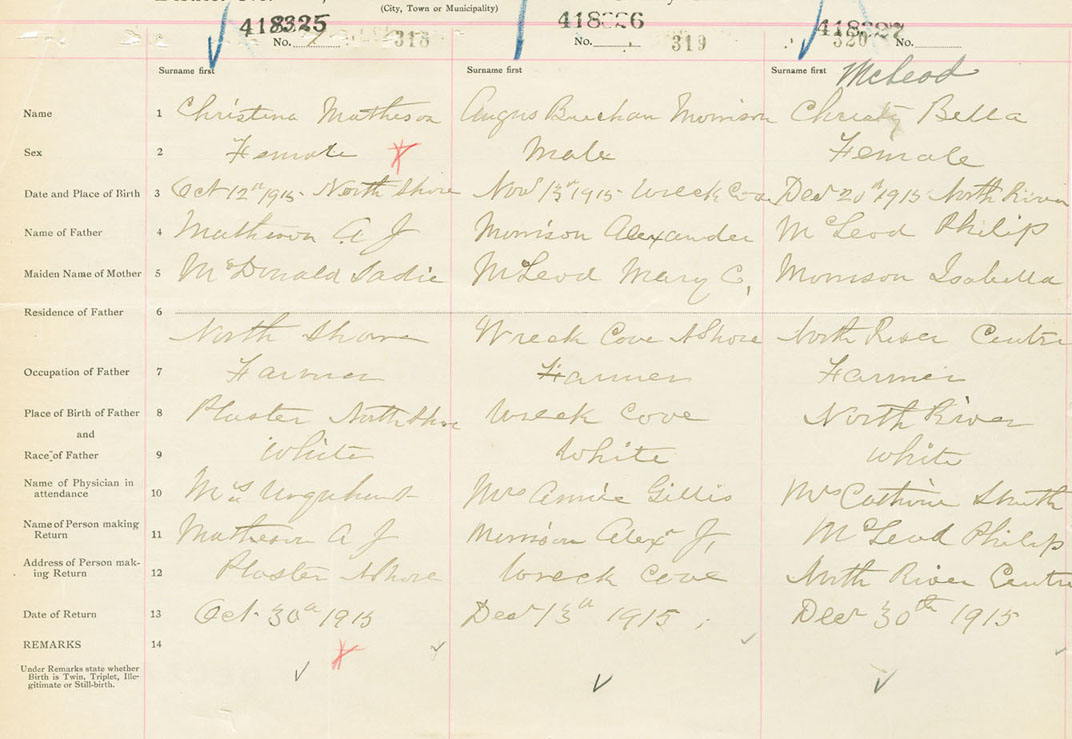 (City, Town or Municipality)
418325 418326 418327
No. 318 No. 319 320 No.
Surname first Surname first Surname first McLeod
Name 1 Christina Matheson Angus Buchan Morrison Christy Bella
Sex 2 Female Male Female
Date and Place of Birth 3 Oct 12th 1915 - North Shore Novr 13th 1915 - Wreck Cove Decr 20th 1915 North River
Name of Father 4 Matheson A J Morrison Alexander McLeod Philip
Maiden Name of Mother 5 McDonald Sadie McLeod Mary C, Morrison Isabella
Residence of Father 6
North Shore Wreck Cove N Shore North River Centre
Occupation of Father 7 Farmer Farmer Farmer
Place of Birth of Father 8 Plaster North Shore Wreck Cove North River
and
Race of Father 9 White White White
Name of Physician in
attendance 10 Mrs Urquhart Mrs Annie Gillis Mrs Cathrine Smith
Name of Person making
Return 11 Matheson A J Morrison Alexr J, McLeod Philip
Address of Person mak-
ing Return 12 Plaster N Shore Wreck Cove North River Centre
Date of Return 13 Oct 30th 1915 Decr 13th 1915, Decr 30th 1915
REMARKS 14
Under Remarks state whether
Birth is Twin, Triplet, Ille-
gitimate or Still-birth.